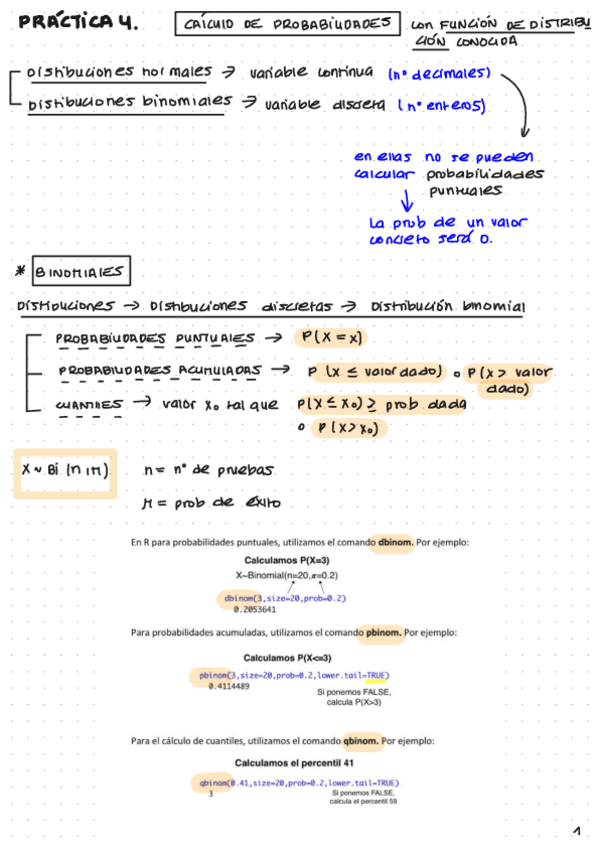 PRÁCTICA 4. CÁLCULO DE PROBABILIDADES con FUNCIÓN DE DISTRIBU
CIÓN CONOCIDA
Distribuciones normales → variable continua (nº decimales)
Distribuciones binomiales → variable discreta (nº enteros)
en ellas no se pueden
calcular probabilidades
puntuales
↓
La prob de un valor
concreto será 0.
* BINOMIALES
Distribuciones → Distribuciones discretas → Distribución binomial
PROBABILIDADES PUNTUALES → P(X = x)
PROBABILIDADES ACUMULADAS → P (X ≤ valor dado) o P(X > valor
dado)
CUANTILES → valor x₀ tal que P(X ≤ X₀) ≥ prob dada
o P(X > X₀)
X ~ Bi (n, π) n = nº de pruebas
π = prob de éxito
En R para probabilidades puntuales, utilizamos el comando dbinom. Por ejemplo:
Calculamos P(X=3)
X~Binomial(n=20,π=0.2)
dbinom(3,size=20,prob=0.2)
0.2053641
Para probabilidades acumuladas, utilizamos el comando pbinom. Por ejemplo:
Calculamos P(X<=3)
pbinom(3,size=20,prob=0.2,lower.tail=TRUE)
0.4114489
Si ponemos FALSE,
calcula P(X>3)
Para el cálculo de cuantiles, utilizamos el comando qbinom. Por ejemplo:
Calculamos el percentil 41
qbinom(0.41,size=20,prob=0.2,lower.tail=TRUE)
3 Si ponemos FALSE,
calcula el percentil 59
1